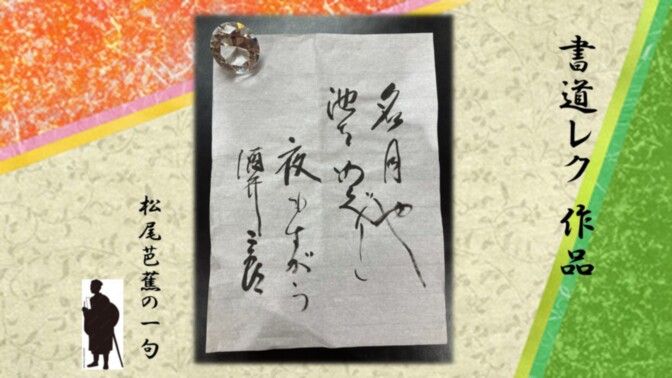 書道レク 作品
名月や
池をめぐりて
夜もすがら
酒井
松尾芭蕉の一句